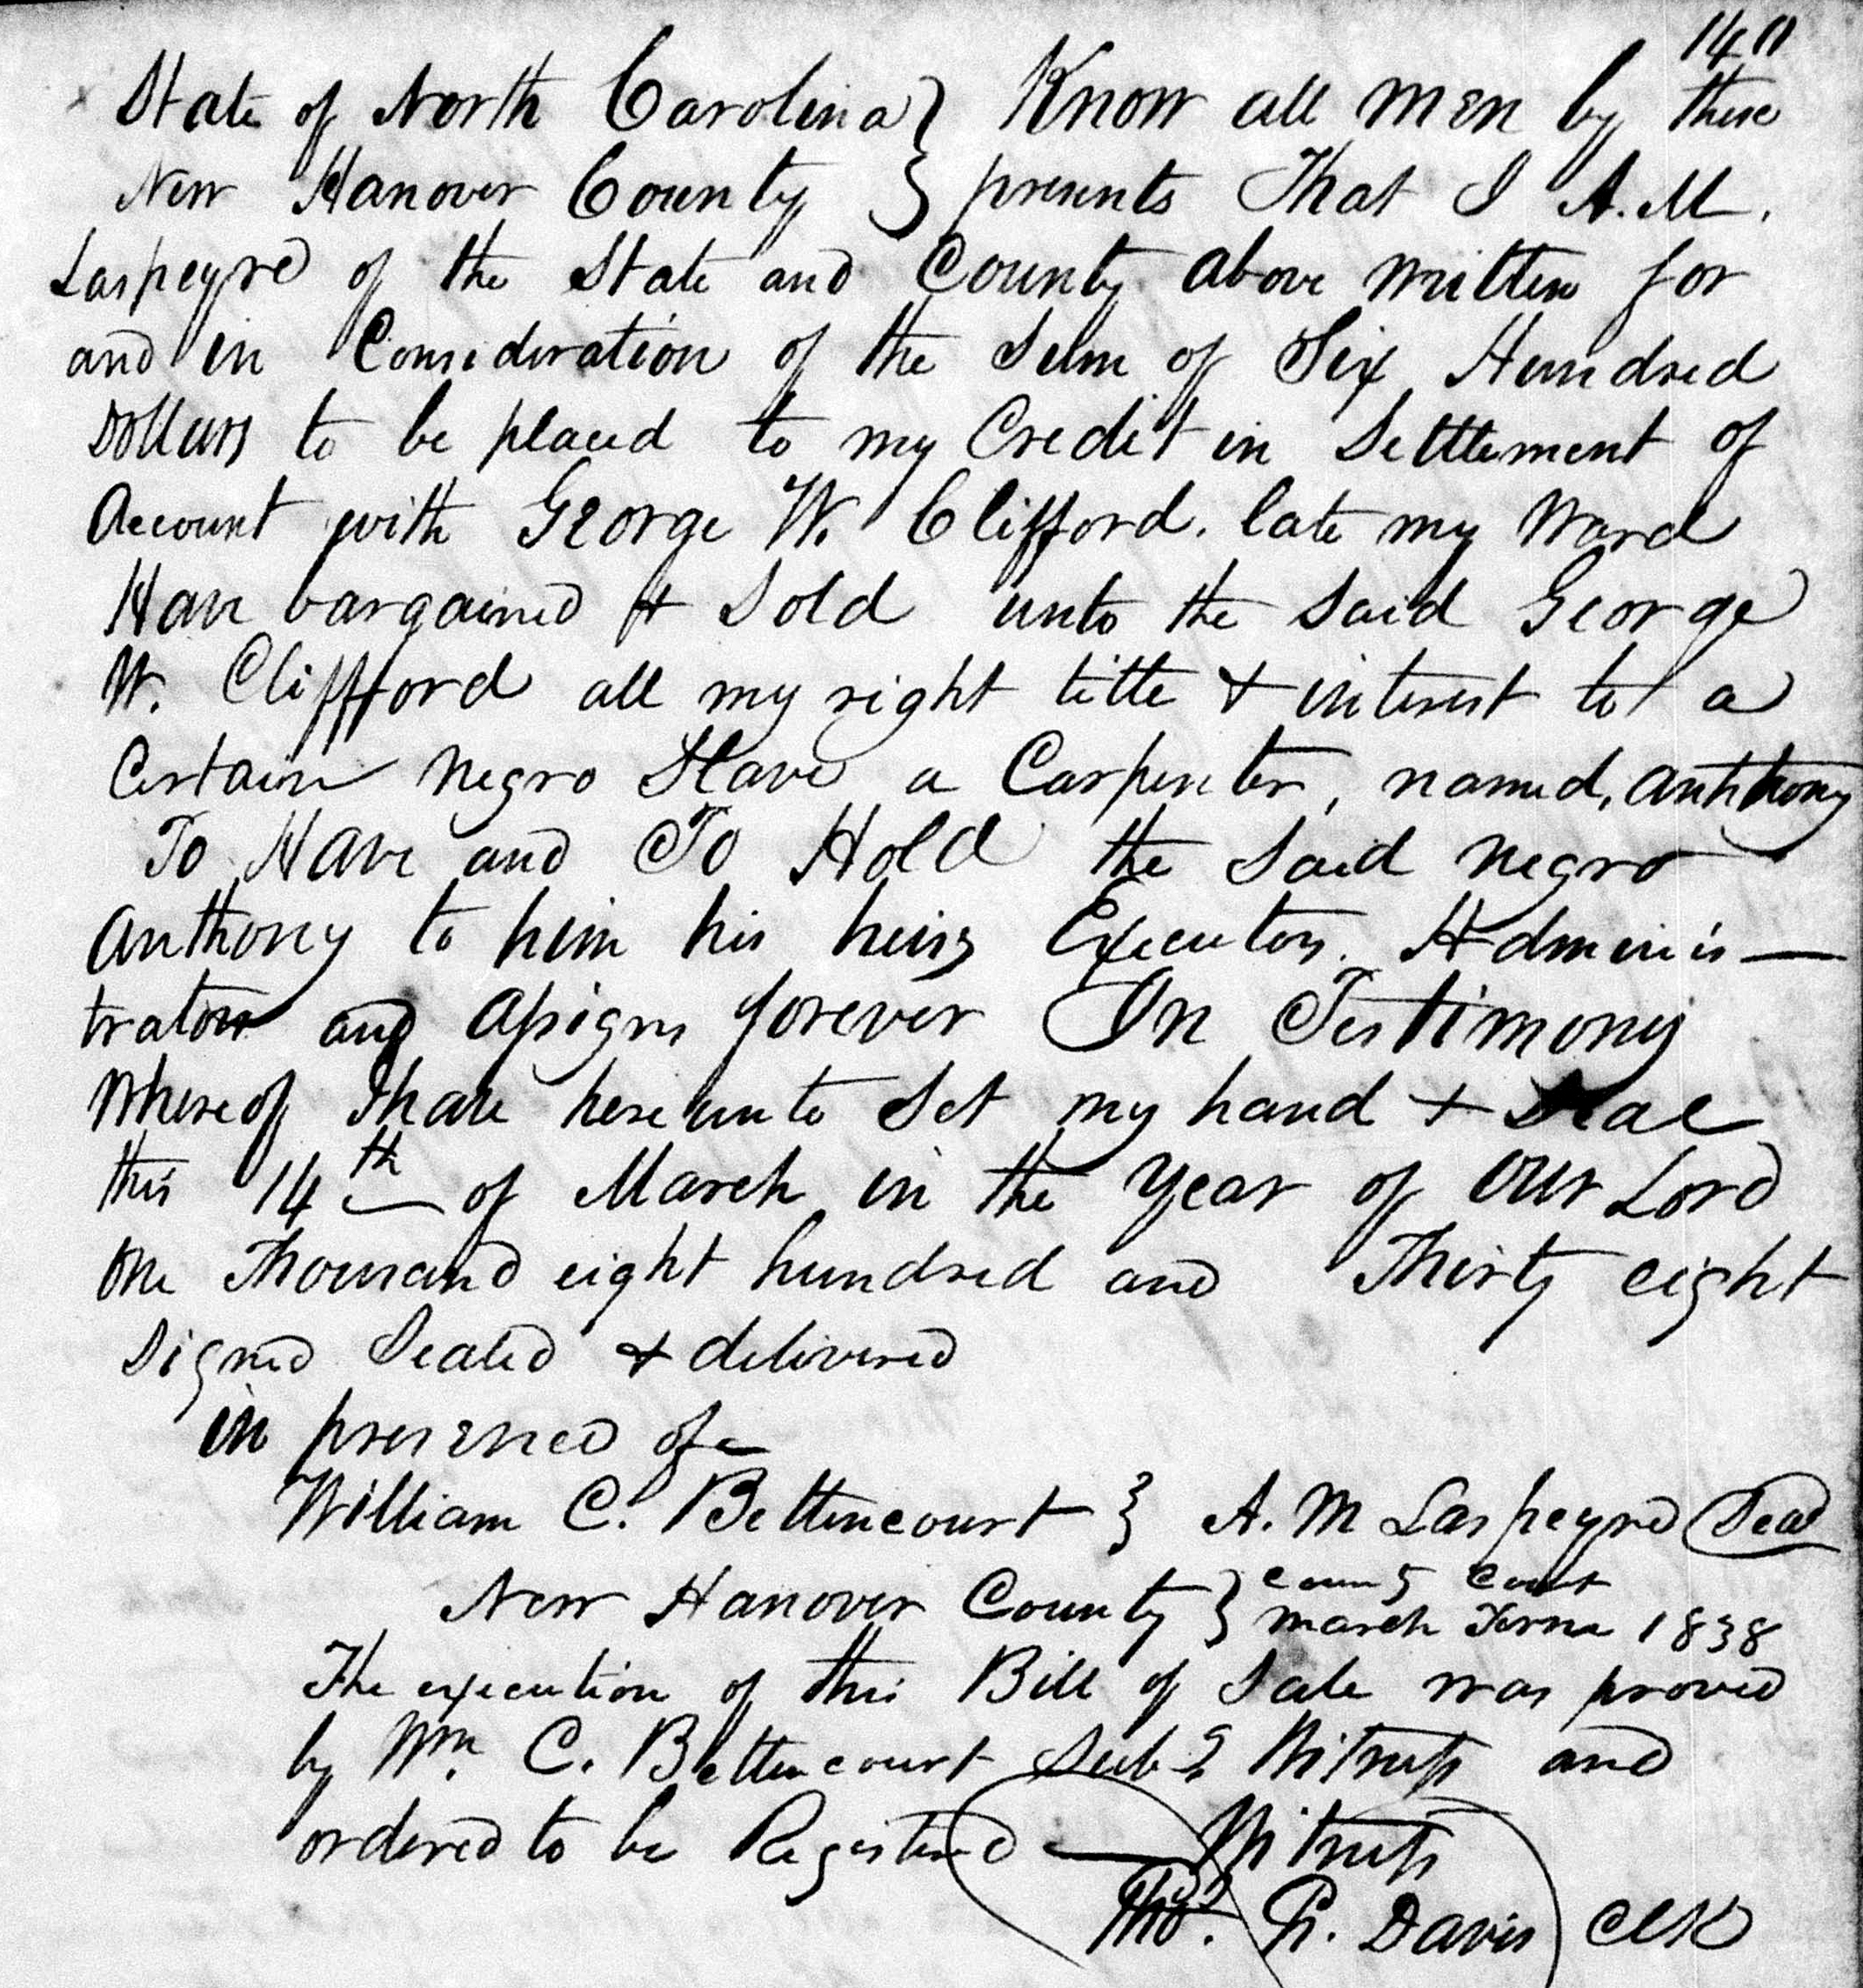 140
State of North Carolina } Know all men by these
New Hanover County } presents That I A. M.
Laspeyre of the State and County above written for
and in Consideration of the Sum of Six Hundred
Dollars to be placed to my Credit in Settlement of
Account with George W. Clifford. late my Ward
Have bargained & Sold unto the Said George
W. Clifford all my right title & interest to a
Certain negro Slave a Carpenter, named, Anthony
To Have and To Hold the Said negro
Anthony to him his heirs Executors. Adminis—
trators and Assigns forever In Testimony
Whereof I have hereunto Set my hand & Seal
this 14th of March in the Year of Our Lord
One Thousand eight hundred and Thirty eight
Signed Sealed & delivered
in presence of
William C. Bettencourt } A. M Laspeyre Seal
New Hanover County } County Court
March Term 1838
The execution of this Bill of Sale was proved
by Wm. C. Bettencourt Subg Witness and
ordered to be Registered — Witness
Thos. R. Davis Clk